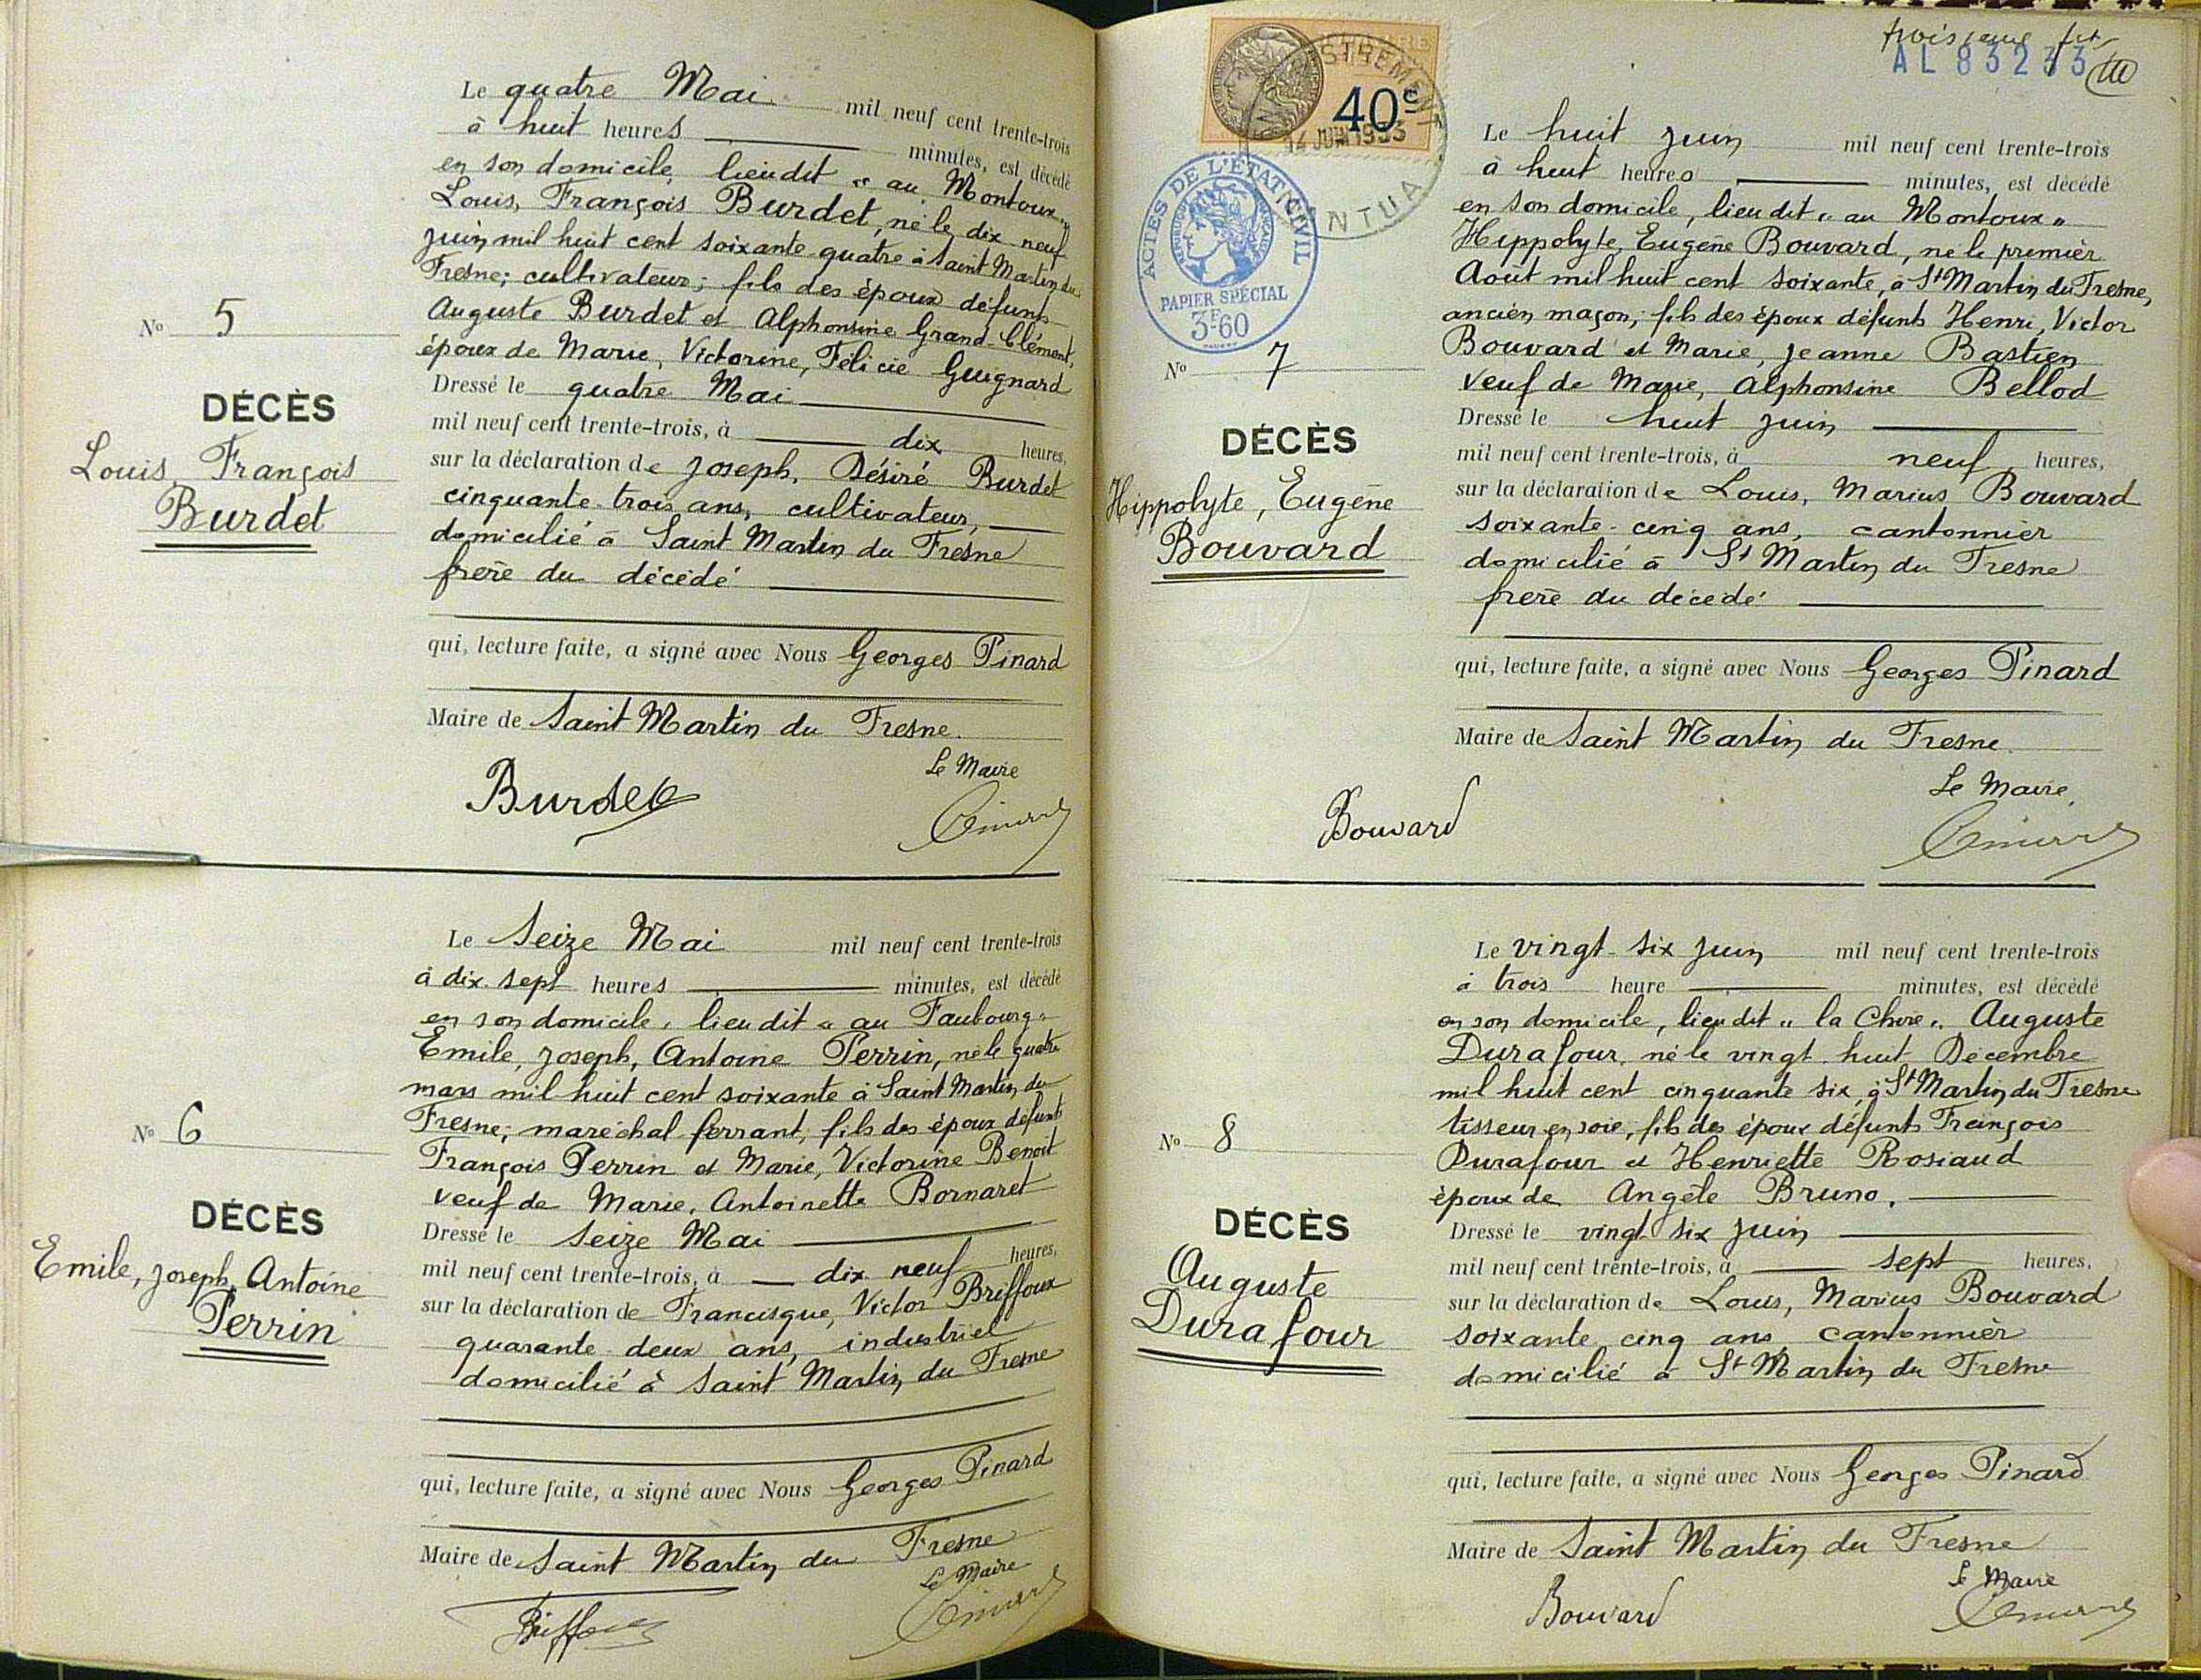 Le quatre Mai mil neuf cent trente-trois
à huit heures minutes, est décédé
en son domicile, lieudit « au Montoux »
Louis, François Burdet, né le dix neuf
juin mil huit cent soixante quatre à Saint Martin du
Fresne; cultivateur; fils des époux défunts
Auguste Burdet et Alphonsine Grand-Clément,
époux de Marie, Victorine, Félicie Guignard
Dressé le quatre Mai
mil neuf cent trente-trois, à dix heures,
sur la déclaration de Joseph, Désiré Burdet
cinquante-trois ans, cultivateur,
domicilié à Saint Martin du Fresne
frère du décédé
qui, lecture faite, a signé avec Nous Georges Pinard
Maire de Saint Martin du Fresne.
Le Maire
Burdet
No 5
DÉCÈS
Louis, François
Burdet
Le Seize Mai mil neuf cent trente-trois
à dix-sept heures minutes, est décédé
en son domicile, lieudit « au Faubourg »
Emile, Joseph, Antoine Perrin, né le quatre
mars mil huit cent soixante à Saint Martin du
Fresne; maréchal ferrant, fils des époux défunts
François Perrin et Marie, Victorine Benoit
veuf de Marie, Antoinette Bornaret
Dressé le Seize Mai
mil neuf cent trente-trois, à dix neuf heures,
sur la déclaration de Francisque, Victor Briffoux
quarante deux ans, industriel
domicilié à Saint Martin du Fresne
qui, lecture faite, a signé avec Nous Georges Pinard
Maire de Saint Martin du Fresne
Le Maire
No 6
DÉCÈS
Emile, Joseph, Antoine
Perrin
AL 83233
40c
14 JUIN 1933
ACTES DE L'ÉTAT CIVIL
PAPIER SPÉCIAL
3F60
Le huit juin mil neuf cent trente-trois
à huit heures minutes, est décédé
en son domicile, lieu dit « au Montoux »
Hippolyte, Eugène Bouvard, né le premier
Août mil huit cent soixante, à St Martin du Fresne,
ancien maçon; fils des époux défunts Henri, Victor
Bouvard et Marie, Jeanne Bastien
veuf de Marie, Alphonsine Bellod
Dressé le huit juin
mil neuf cent trente-trois, à neuf heures,
sur la déclaration de Louis, Marius Bouvard
soixante-cinq ans, cantonnier
domicilié à St Martin du Fresne
frère du décédé
qui, lecture faite, a signé avec Nous Georges Pinard
Maire de Saint Martin du Fresne.
Le Maire,
Bouvard
No 7
DÉCÈS
Hippolyte, Eugène
Bouvard
Le vingt-six juin mil neuf cent trente-trois
à trois heure minutes, est décédé
en son domicile, lieu dit « la Chore » Auguste
Durafour, né le vingt huit Décembre
mil huit cent cinquante six, à St Martin du Fresne
tisseur en soie, fils des époux défunts François
Durafour et Henriette Rosiaud
époux de Angèle Bruno.
Dressé le vingt six juin
mil neuf cent trente-trois, à sept heures,
sur la déclaration de Louis, Marius Bouvard
soixante cinq ans cantonnier
domicilié à St Martin du Fresne
qui, lecture faite, a signé avec Nous Georges Pinard
Maire de Saint Martin du Fresne
Le Maire
Bouvard
No 8
DÉCÈS
Auguste
Durafour